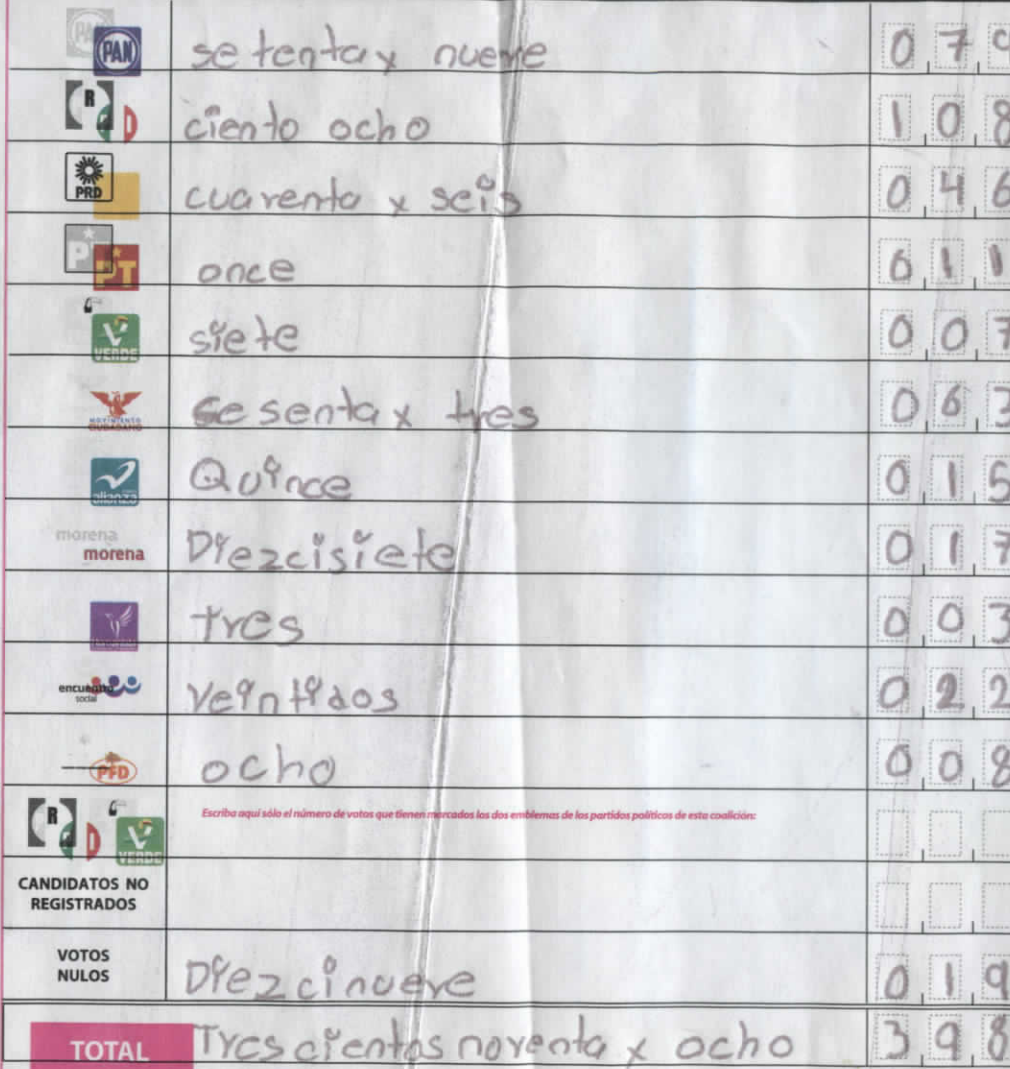 PAN PAN setenta y nueve 079
R D ciento ocho 108
PRD cuarenta y seis 046
PT PT once 011
VERDE siete 007
MOVIMIENTO CIUDADANO sesenta y tres 063
alianza Quince 015
morena morena Diezcisiete 017
tres 003
encuentro social Veintidos 022
PFD ocho 008
R D VERDE Escriba aquí sólo el número de votos que tienen marcados los dos emblemas de los partidos políticos de esta coalición:
CANDIDATOS NO
REGISTRADOS
VOTOS
NULOS Diezcinueve 019
TOTAL Tres cientos noventa y ocho 398